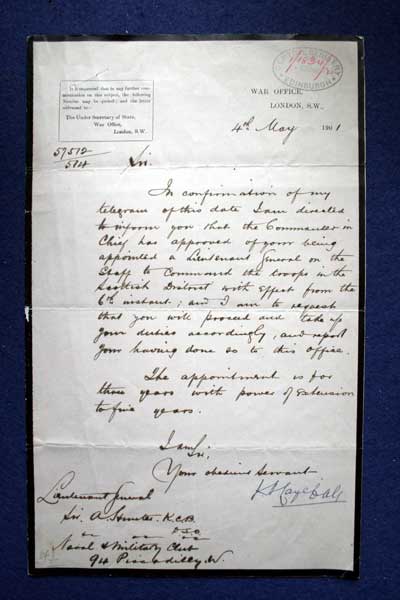 It is requested that in any further com-
munication on this subject, the following
Number may be quoted; and the letter
addressed to:—
The Under Secretary of State,
War Office,
London, S.W.
EDINBURGH
WAR OFFICE,
LONDON, S.W.
4th May 1901
57512
514
Sir,
In confirmation of my
telegram of this date I am directed
to inform you that the Commander in
Chief has approved of your being
appointed a Lieutenant General on the
Staff to Command the troops in the
Scottish District with effect from the
6th instant; and I am to request
that you will proceed and take up
your duties accordingly, and report
your having done so to this office.
The appointment is for
three years with power of Extension
to five years.
I am,
Sir,
Your obedient Servant
Lieutenant General
Sir A Hunter K.C.B.
D.S.O.
Naval & Military Club
94 Piccadilly W.